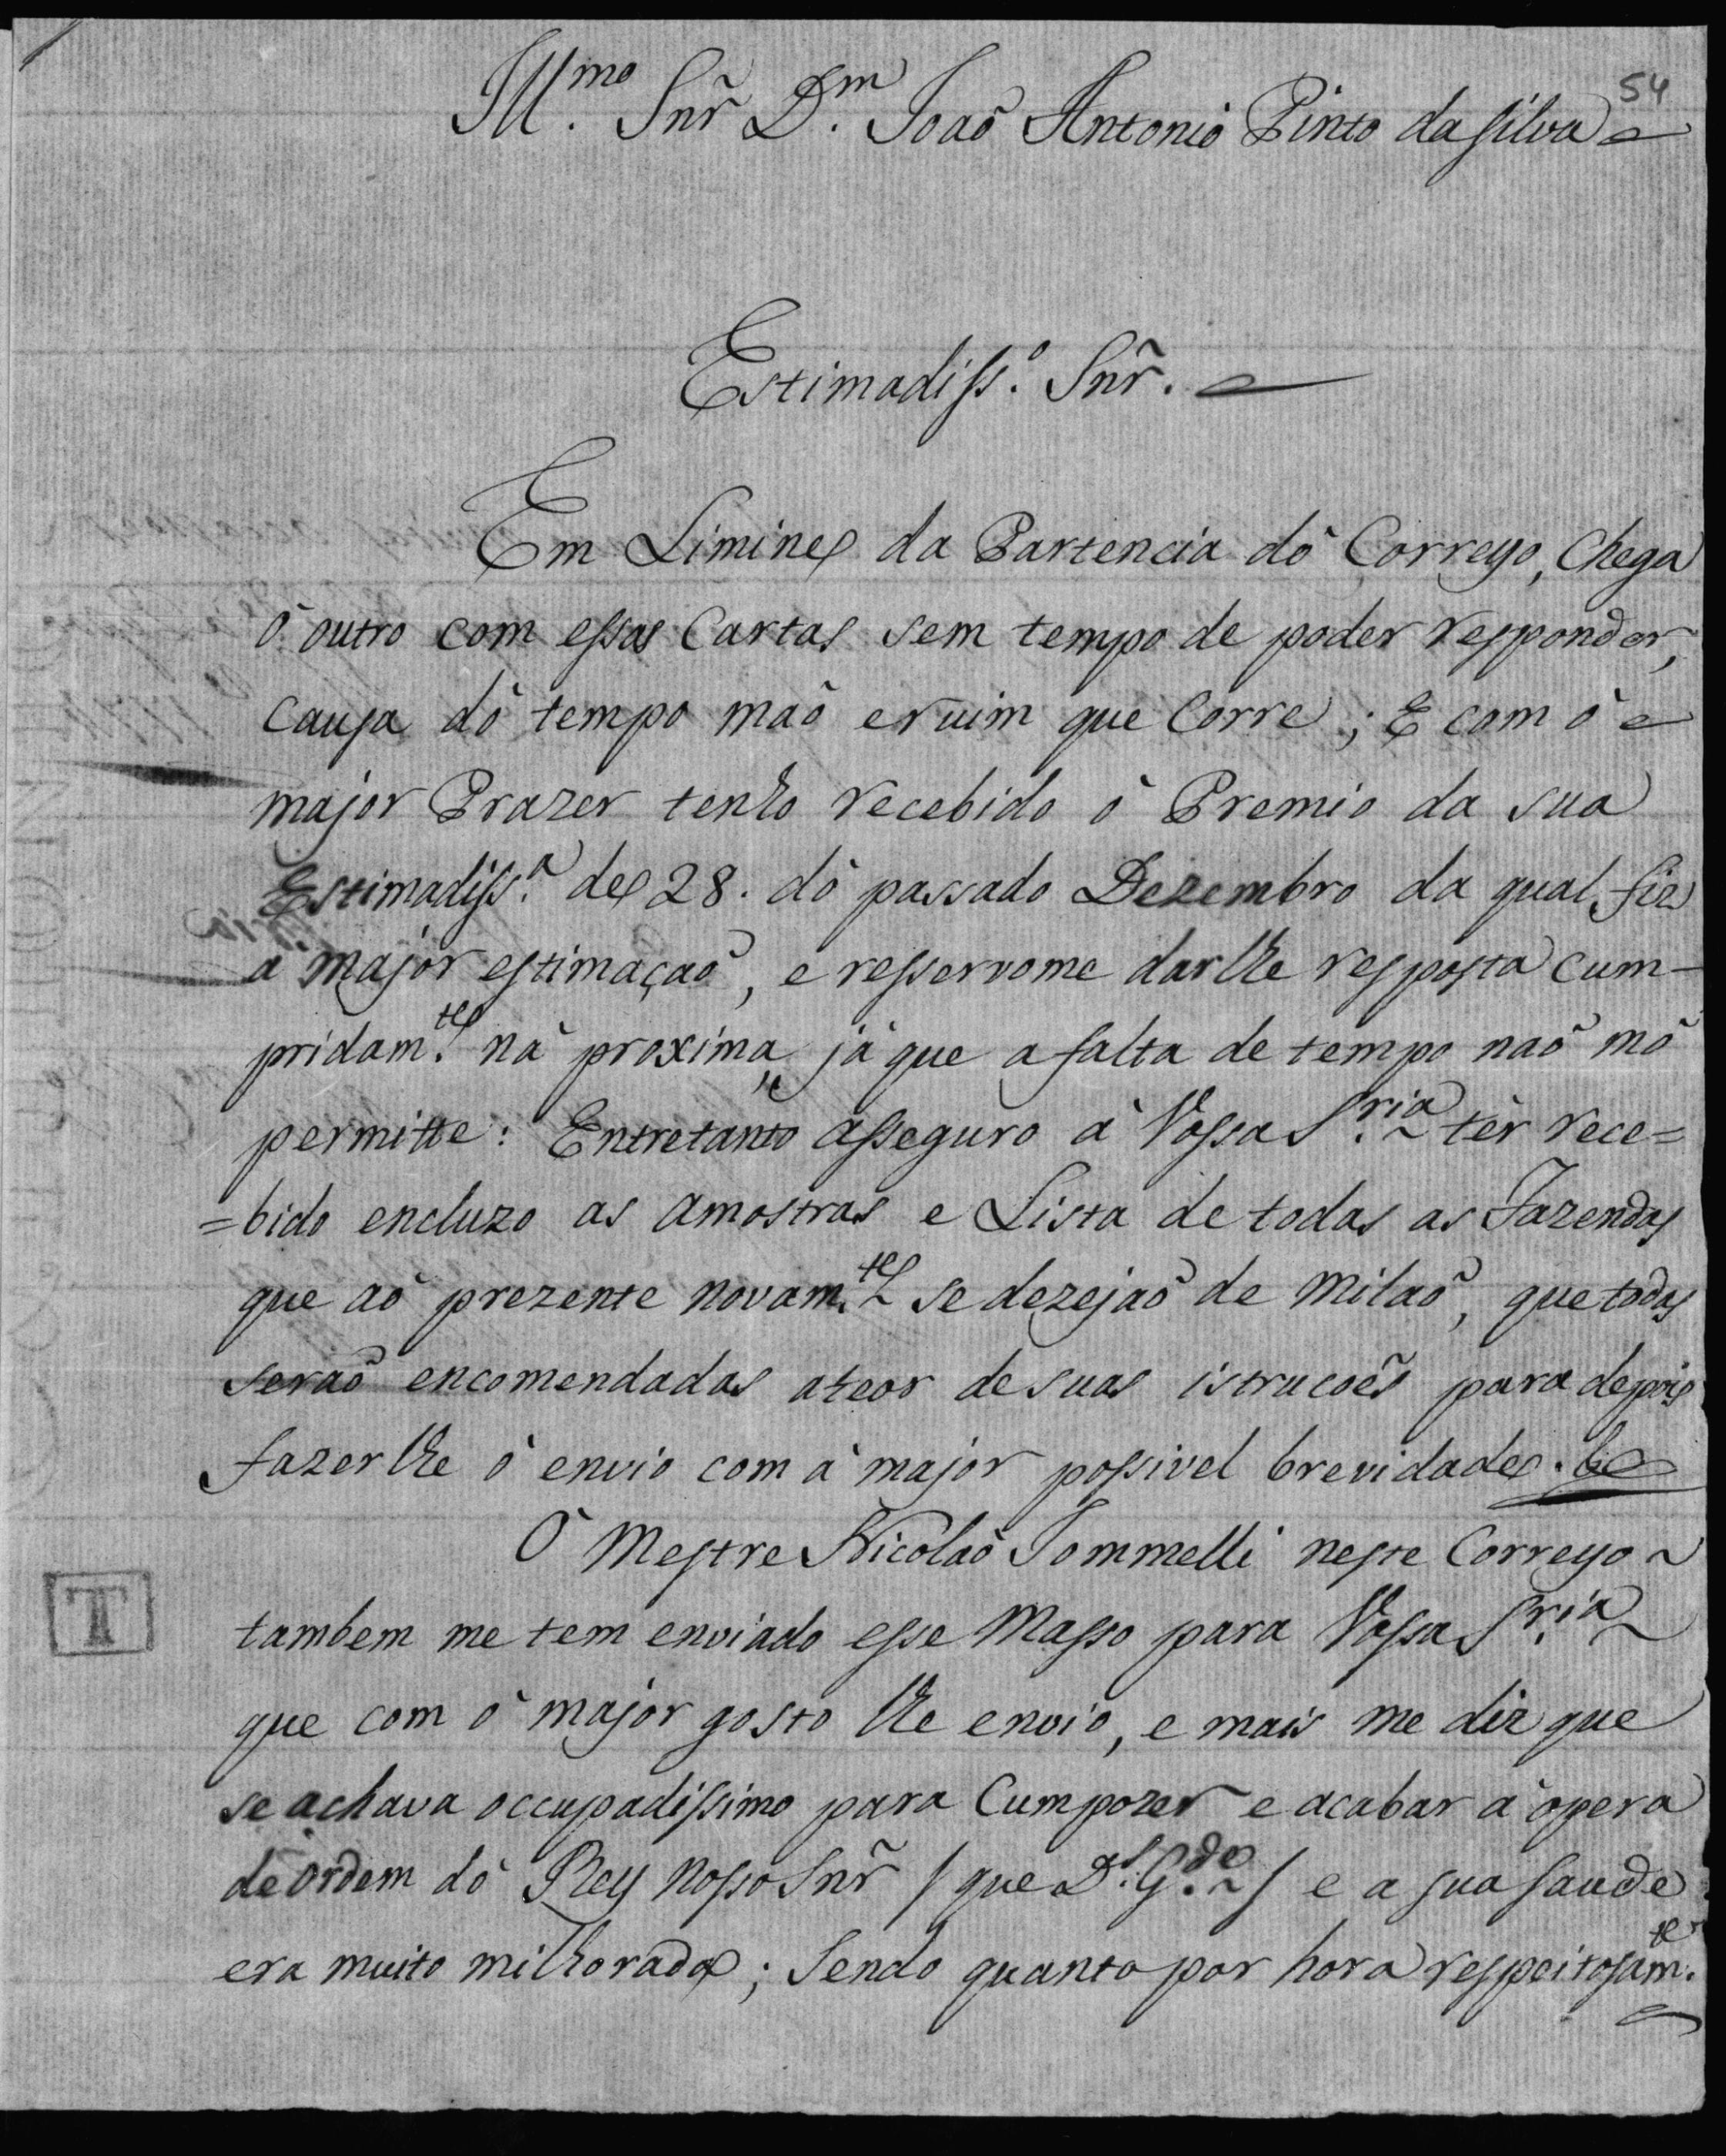 54
Ill.mo Snr̃ D.m Joaõ Antonio Pinto da silva
Estimadiss.o Snr̃.
Em Limine da Partencia dò Correyo, Chega
ò outro com essas Cartas sem tempo de poder responder,
causa dò tempo maò e ruim que Corre; E com ò
major Prazer tenho recebido ò Premio da sua
Estimadiss.a de 28. dò passado Dezembro da qual fiz
à major estimaçaõ, e resservome darlhe resposta cum-
pridam.te nà proxima, jà que a falta de tempo naõ mò
permitte: Entretanto asseguro à Vossa S.ria tèr rece=
=bido encluzo as amostras e Lista de todas as Fazendas
que aò prezente novam.te se dezejaõ de Milaõ, que todas
seraõ encomendadas a teor de suas istrucoẽs para depois
fazerlhe ò envio com à major possivel brevidade.
Ò Mestre Nicolaò Jommelli neste Correyo
tambem me tem enviado esse Masso para Vossa S.ria
que com ò major gosto lhe envio, e mais me diz que
se achava occupadissimo para Cumpozer e acabar à òpera
de ordem dò Rey Nosso Snr̃ / que D.s G.de / e a sua saude
era muito milhorada; Sendo quanto por hora respeitosam.te
T